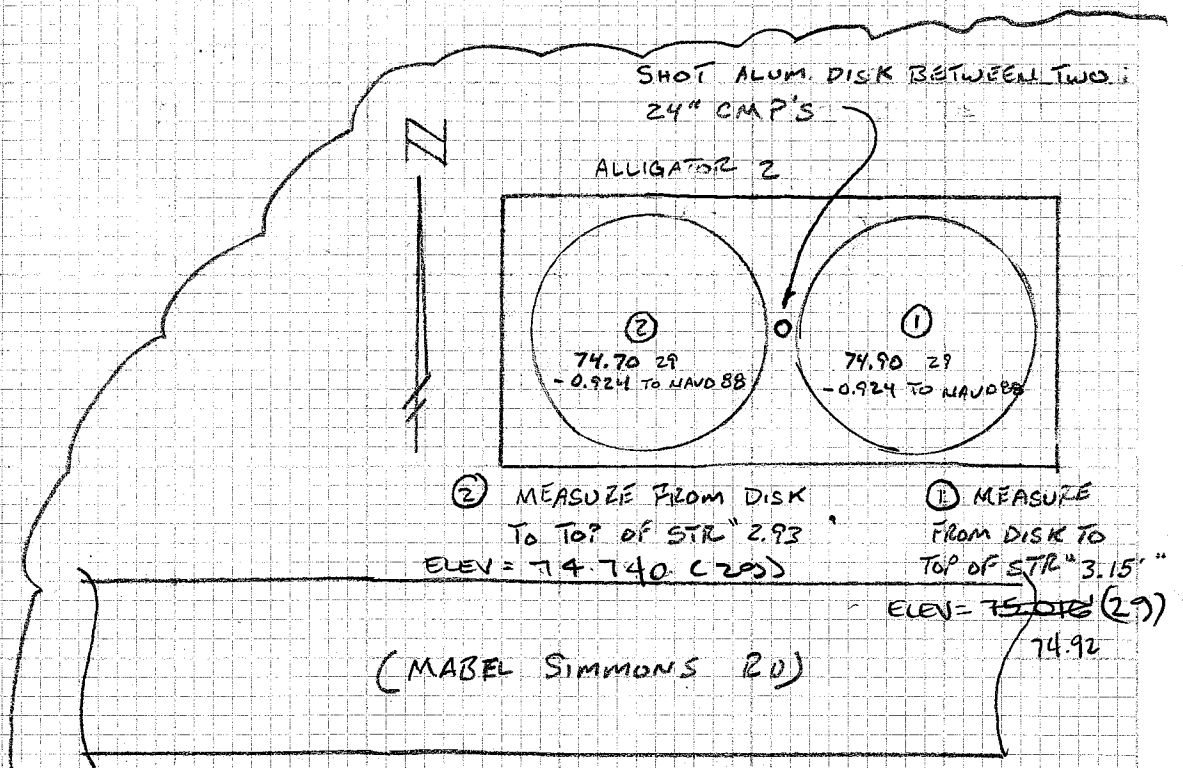 SHOT ALUM. DISK BETWEEN TWO
24" CMP'S
N
ALLIGATOR 2
②
74.70 29
-0.924 TO NAVD 88
①
74.90 29
-0.924 TO NAVD 88
② MEASURE FROM DISK
TO TOP OF STR" 2.93
ELEV = 74.740 (29)
① MEASURE
FROM DISK TO
TOP OF STR" 3.15'"
ELEV = 75.016' (29)
74.92
(MABEL SIMMONS RD)